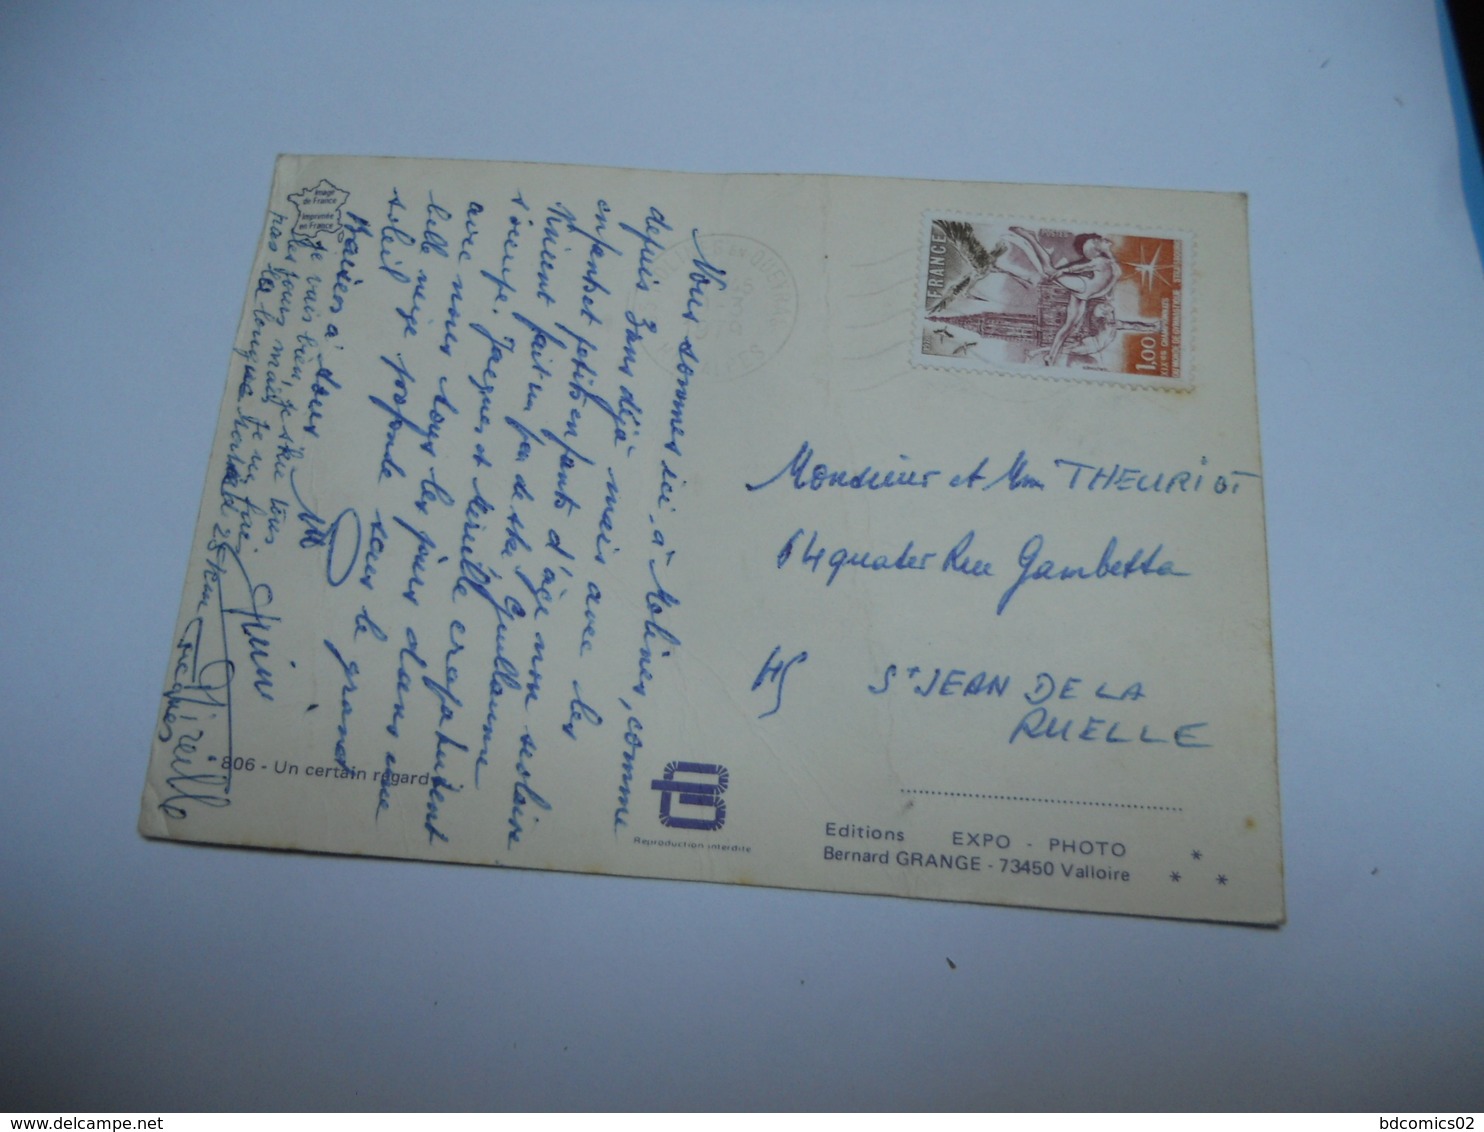 Image
de France
Imprimée
en France
Nous sommes ici à Molines, comme
depuis 3 ans déjà mais avec les
enfants et petits enfants d'âge non scolaire
Vincent fait un peu de ski Guillaume
s'occupe. Jacques et Mireille crapahutent
avec nous tous les jours dans une
belle neige profonde sous le grand
soleil
Baisers à tous
je vais bien, je skie tous
les jours mais je ne fais
pas la longue 25 km
Mireille
Jacques
806 - Un certain regard
Reproduction interdite
MOLINES EN QUEYRAS
FRANCE
1,00
Monsieur et Mme THEURIOT
64 quater Rue Gambetta
45 St JEAN DE LA
RUELLE
Editions EXPO - PHOTO
Bernard GRANGE - 73450 Valloire
* * *
bdcomics02